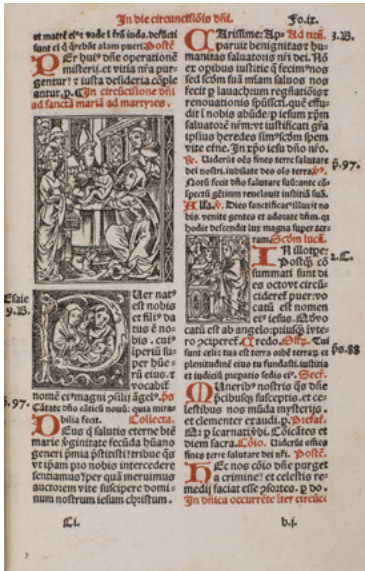 In die circuncisiõis dñi.
Fo.ix.
et matrẽ eiꝰ ⁊ vade ĩ terrã iuda. defũcti
sunt eĩ q̃ q̃rebãt alam pueri. Postcõ.
PEr huiꝰ dñe operationẽ
misterij. et vitia nr̃a pur-
gentur: ⁊ iusta desideria cõple
antur. p. In circũcisione dñi
ad sanctã mariã ad martyres.
PUer natꝰ
est nobis
et filiꝰ da
tus ẽ no-
bis. cuiꝰ
iperiũ su-
per hũe-
rũ eiꝰ. ⁊
vocabit̃
nomẽ ei magni ꝯsilij ãgelꝰ. ps
Cãtate dño cãticũ nouũ: quia mira-
bilia fecit. Collecta.
DEus q̃ salutis eterne btẽ
marie v̓ginitate fecũda hũano
generi p̃mia p̃stitisti: tribue q̃s
vt ip̃am pro nobis intercedere
sentiamꝰ ꝑer quã meruimus
auctorem vite suscipere domi-
num nostrum iesum christum.
Esaie
9. B.
ps. 97.
Ci.
CArissime: Ap- Ad titũ.
paruit benignitas ⁊ hu-
manitas saluatoris nr̃i dei. Nõ
ex opibus iustitie q̃ fecimꝰ nos
sed scd̃m suã mĩam saluos nos
fecit ꝑ lauachrum regñatiõis ⁊
renouationis sp̃ussc̃ti. quẽ effu-
dit ĩ nobis abũde: ꝑ iesum xp̃m
saluatorẽ nr̃m: vt iustificati gr̃a
ip̃sius heredes simꝰ scd̃m spem
vite etẽne. In xp̃o iesu dño nr̃o.
Uiderũt oẽs fines terre salutare
dei nostri. iubilate deo oĩs terra. v.
Notũ fecit dñs salutare suũ: ante cõ-
spectũ gẽtium reuelauit iustitiã suã.
Alla. v. Dies sanctificatꝰ illuxit no
bis. venite gentes et adorate dñm. q̃
hodie descendit lux magna super ter
ram. Scd̃m lucã.
IN illo tpe:
Postq̃ cõ
summati sunt di
es octo vt circũ-
cideret̃ puer: vo
catũ est nomen
eiꝰ iesus. Quod vo
catũ est ab angelo: priusq̃ vtero
ꝯciperet̃. Credo. Offer. Tui
sunt celi: ⁊ tua est terra orbẽ terrarũ et
plenitudinẽ eius tu fundasti. iustitia
et iudiciũ p̃paratio sedis eiꝰ. Secr.
MUneribꝰ nostris q̃s dñe
p̃cibusq̃ susceptis. et ce-
lestibus nos mũda mysterijs.
et clementer exaudi. p. Prefat.
Quia ꝑ incarnati v̓bi. Cõicãtes et
diem sacra. Cõio. Uiderũt oẽs
fines terre salutare dei nr̃i. Postcõ.
HEc nos cõio dñe purget
a crimine: et celestis re-
medij faciat esse ꝯsortes. p. do.
In dñica occurrẽte iter circũci
3. B.
p̃. 97.
2. C.
ps. 88
b.j.